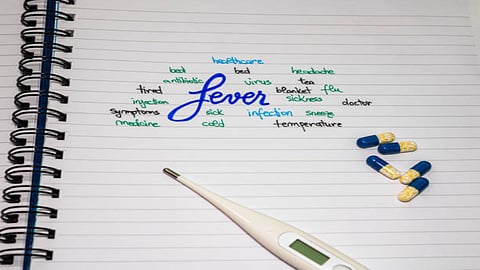 healthcare
bed bed headache
antibiotic virus tea
tired blanket flu
fever
injection sickness doctor
symptoms sick infection sneeze
medecine cold temperature